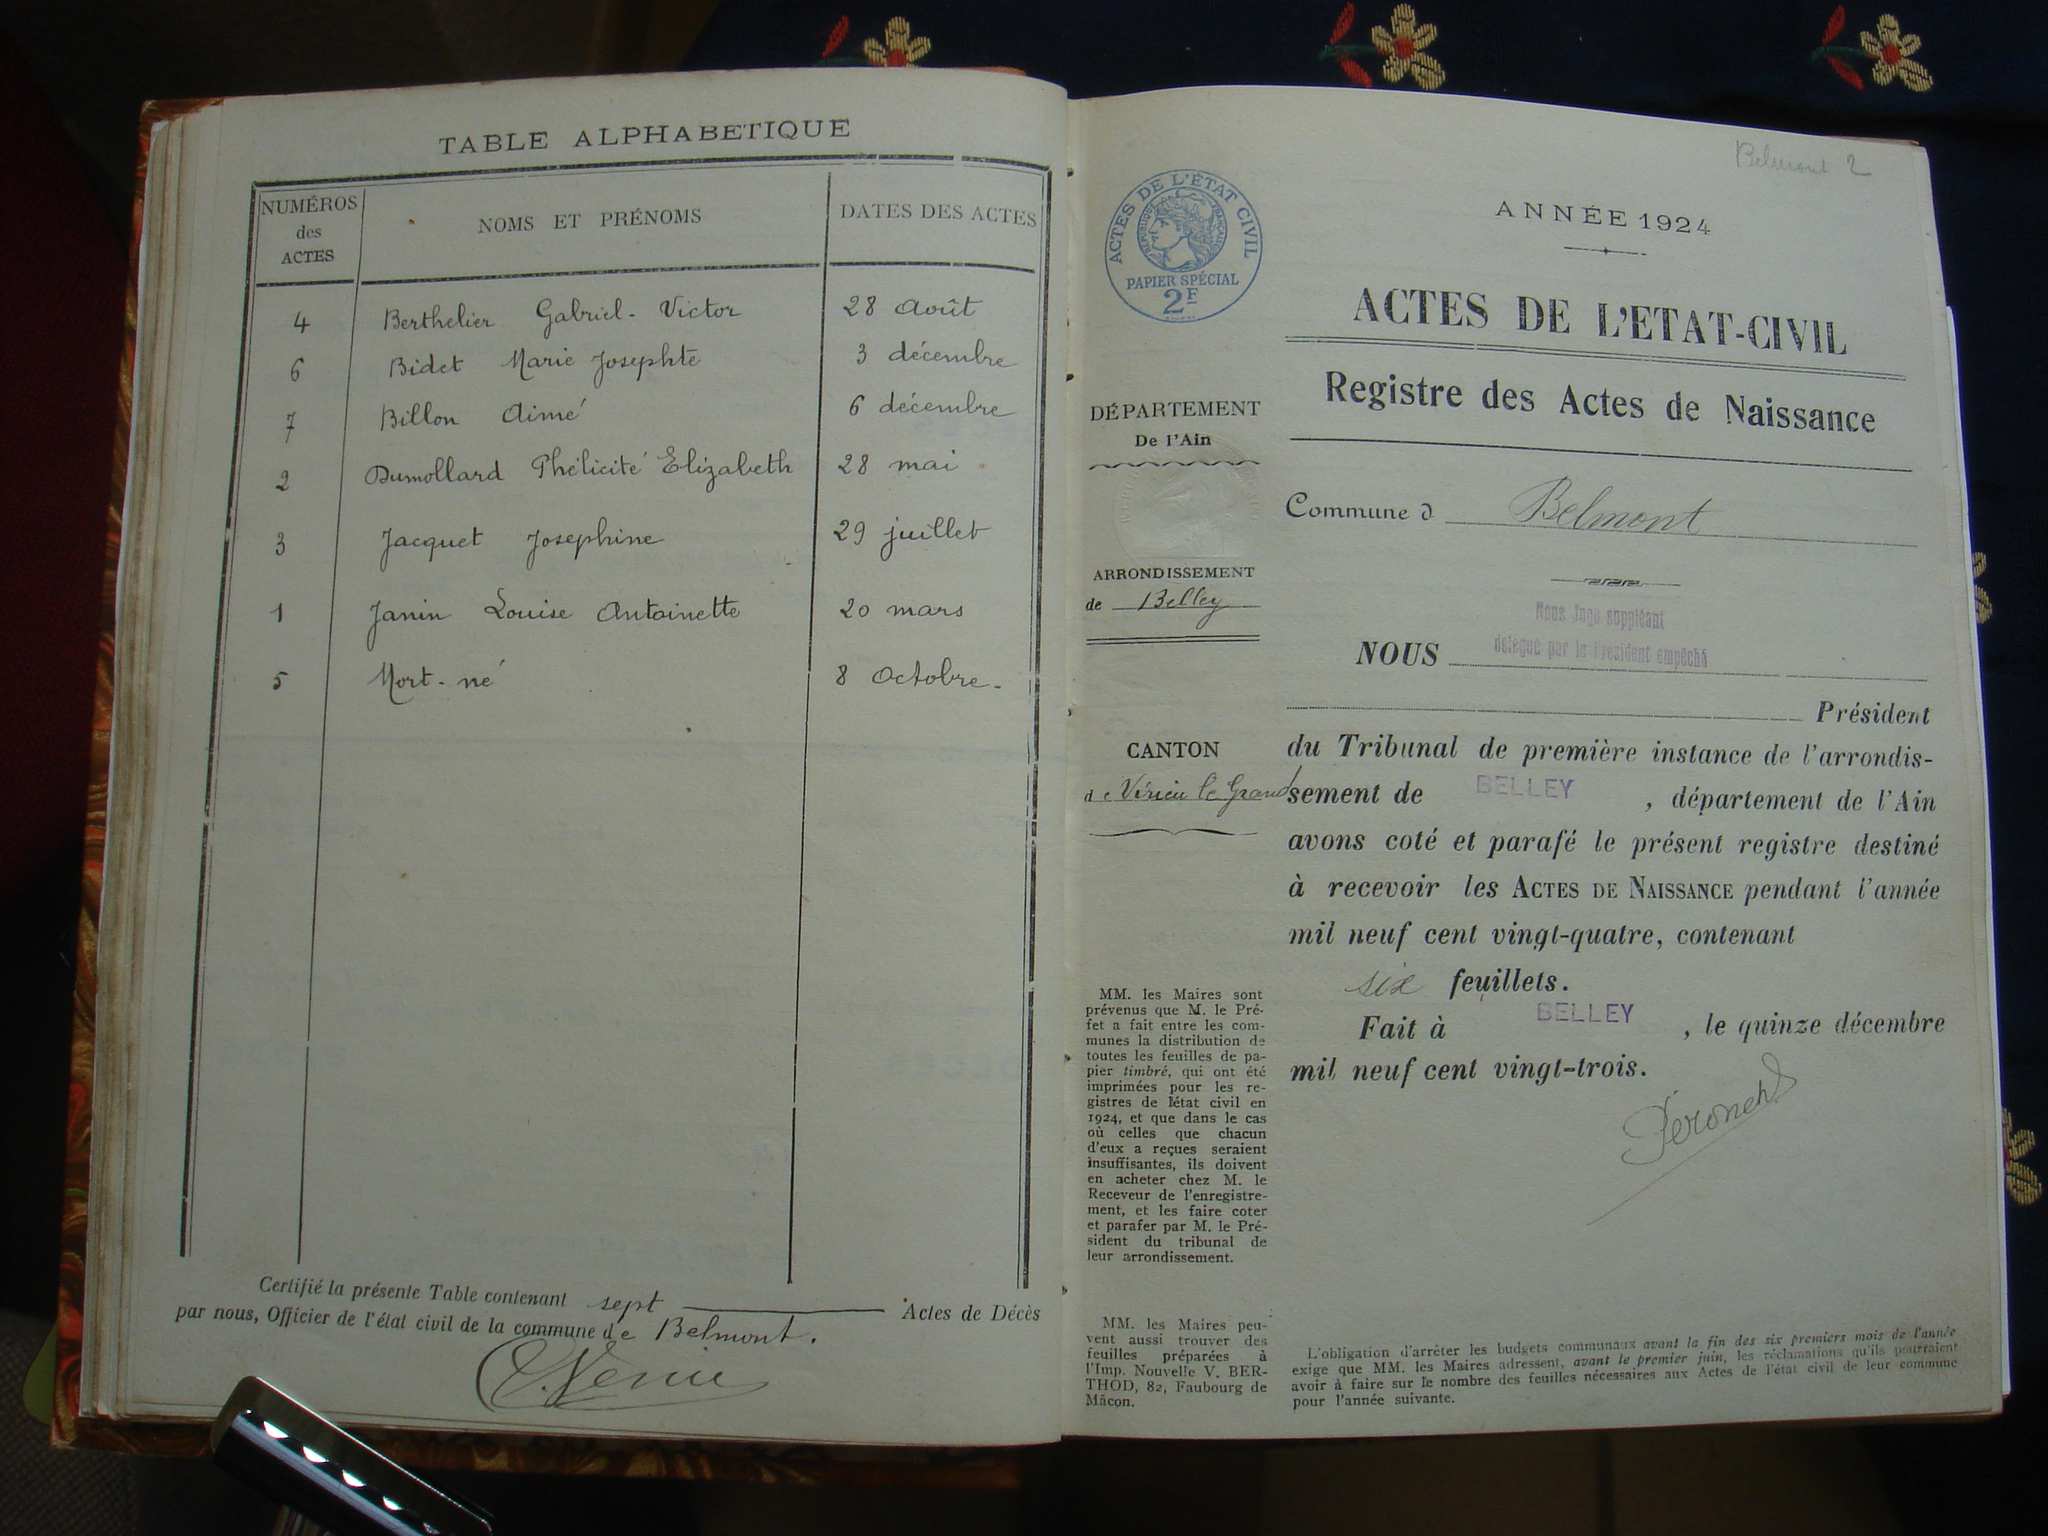 TABLE ALPHABETIQUE
NUMÉROS des ACTES NOMS ET PRÉNOMS DATES DES ACTES
4 Berthelier Gabriel-Victor 28 Août
6 Bidet Marie Josephte 3 décembre
7 Billon Aimé 6 décembre
2 Dumollard Phélicité Elizabeth 28 mai
3 Jacquet Josephine 29 juillet
1 Janin Louise Antoinette 20 mars
5 Mort-né 8 Octobre.
Certifié la présente Table contenant sept Actes de Décès
par nous, Officier de l'état civil de la commune de Belmont.
Belmont 2
ACTES DE L'ÉTAT CIVIL
RÉPUBLIQUE FRANÇAISE
PAPIER SPÉCIAL
2F
DÉPARTEMENT
De l'Ain
ARRONDISSEMENT
de Belley
CANTON
de Virieu le Grand
MM. les Maires sont
prévenus que M. le Pré-
fet a fait entre les com-
munes la distribution de
toutes les feuilles de pa-
pier timbré, qui ont été
imprimées pour les re-
gistres de l'état civil en
1924, et que dans le cas
où celles que chacun
d'eux a reçues seraient
insuffisantes, ils doivent
en acheter chez M. le
Receveur de l'enregistre-
ment, et les faire coter
et parafer par M. le Pré-
sident du tribunal de
leur arrondissement.
MM. les Maires peu-
vent aussi trouver des
feuilles préparées à
l'Imp. Nouvelle V. BER-
THOD, 82, Faubourg de
Mâcon.
ANNÉE 1924
ACTES DE L'ETAT-CIVIL
Registre des Actes de Naissance
Commune d Belmont
Nous Juge suppléant
NOUS délégué par le Président empêché
Président
du Tribunal de première instance de l'arrondis-
sement de BELLEY, département de l'Ain
avons coté et parafé le présent registre destiné
à recevoir les ACTES DE NAISSANCE pendant l'année
mil neuf cent vingt-quatre, contenant
six feuillets.
Fait à BELLEY, le quinze décembre
mil neuf cent vingt-trois.
L'obligation d'arrêter les budgets communaux avant la fin des six premiers mois de l'année
exige que MM. les Maires adressent, avant le premier juin, les réclamations qu'ils pourraient
avoir à faire sur le nombre des feuilles nécessaires aux Actes de l'état civil de leur commune
pour l'année suivante.